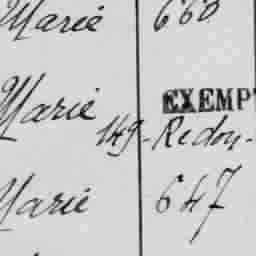 Marie 660
Marie EXEMPT
149-Redon-
Marie 647